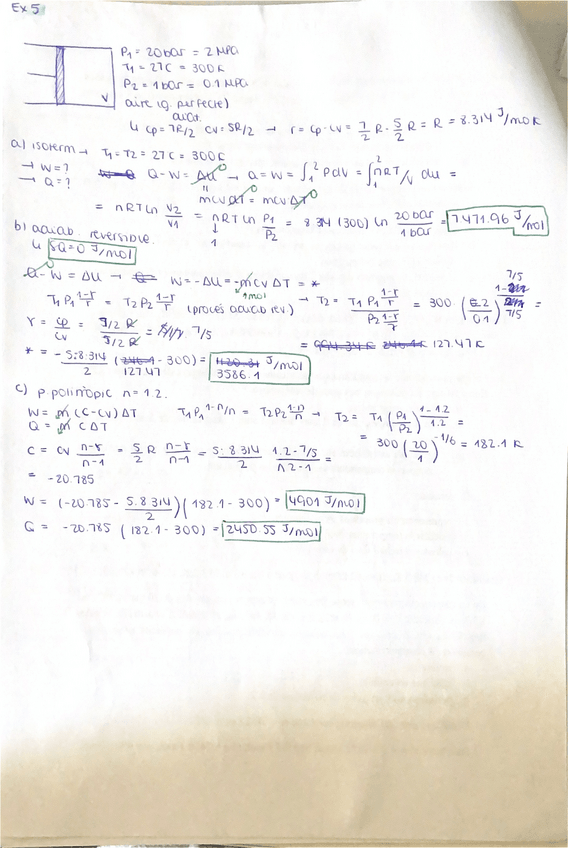 Ex 5
P1 = 20 bar = 2 MPa
T1 = 27 C = 300 K
P2 = 1 bar = 0.1 MPa
V
aire (g. perfecte)
↳ cp = 7R/2 cv = 5R/2 → r = cp - cv = 7/2 R - 5/2 R = R = 8.314 J/mol K
a) isoterm → T1 = T2 = 27 C = 300 K
→ W = ?
→ Q = ?
Q - W = ΔU → Q = W = ∫₁² P dV = ∫₁² nRT/V dv =
mcv ΔT = mcv ΔT 0
= nRT ln V2/V1 = nRT ln P1/P2 = 8.314 (300) ln 20 bar/1 bar = 7471.96 J/mol
1
b) adiab. reversible.
↳ δQ = 0 J/mol
Q - W = ΔU → W = -ΔU = -m cv ΔT = *
1 mol
T1 P1^(1-γ/γ) = T2 P2^(1-γ/γ) (procés adiab rev.) → T2 = T1 P1^(1-γ/γ) / P2^(1-γ/γ) = 300 ·
γ = cp/cv = 7/2 R / 5/2 R = 7/5
= 127.47 K
* = - 5·8.314/2 (127.47 - 300) = 3586.1 J/mol
c) p. politròpic n = 1.2.
W = m (c - cv) ΔT T1 P1^(1-n/n) = T2 P2^(1-n/n) → T2 = T1 (P1/P2)^(1-1.2/1.2) =
Q = m c ΔT
= 300 (20/1)^(-1/6) = 182.1 K
c = cv n-γ/n-1 = 5/2 R n-γ/n-1 = 5·8.314/2 1.2-7/5 / 1.2-1 =
= -20.785
W = (-20.785 - 5·8.314/2) (182.1 - 300) = 4901 J/mol
Q = -20.785 (182.1 - 300) = 2450.55 J/mol